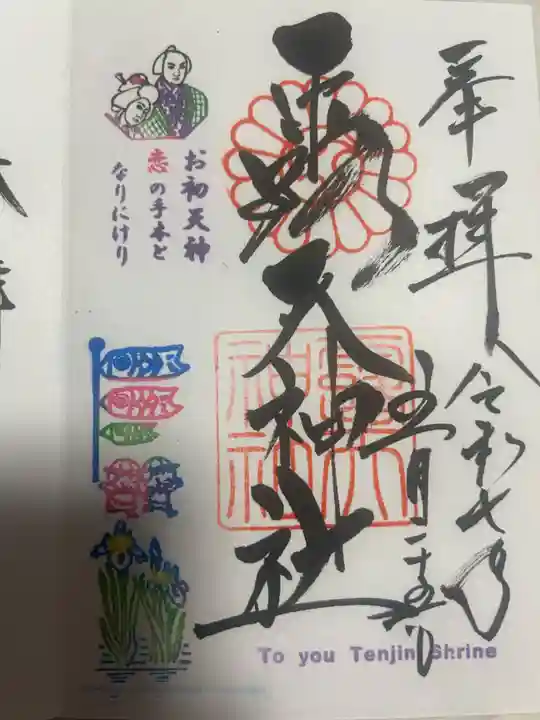 奉拝
令和七年
五月二十五日
露天神社
露天
神社
お初天神
恋の手本と
なりにけり
To you Tenjin Shrine